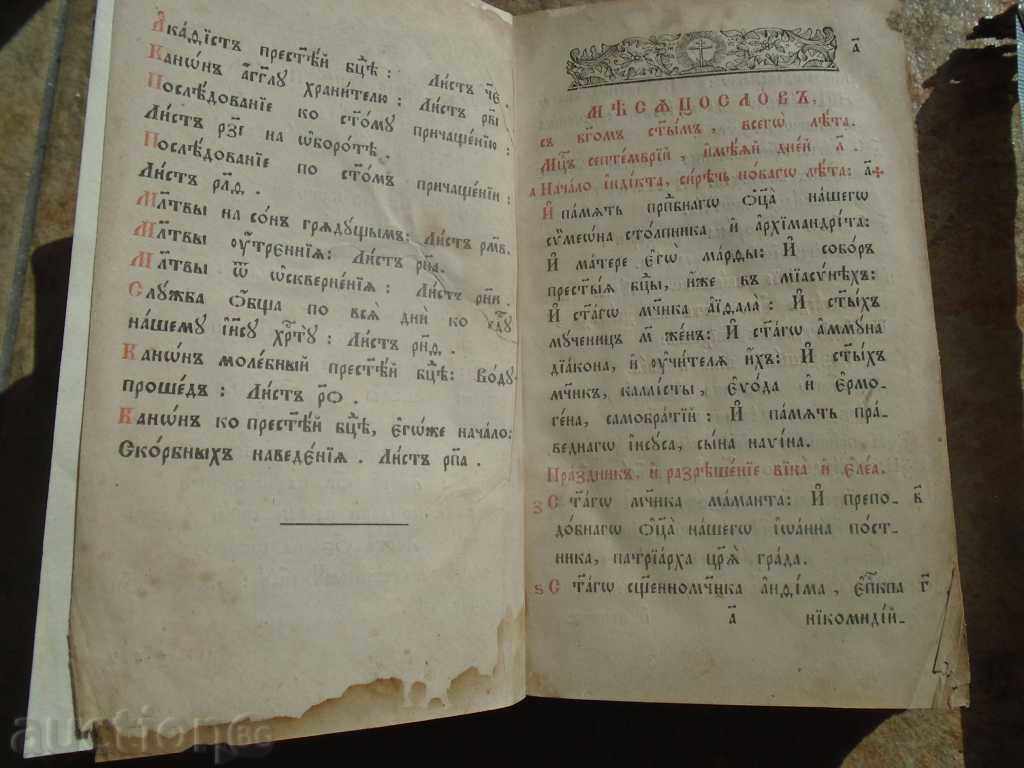 Акаѳїстъ прест҃ѣй бц҃ѣ : Листъ ч҃е .
Канѡнъ а҆́гг҃лꙋ хранителю : Листъ рв҃і
Послѣдованїе ко ст҃омꙋ причащенїю :
Листъ рз҃і на ѡ҆боротѣ .
Послѣдованїе по ст҃омъ причащенїи :
Листъ рл҃д .
Мл҃твы на сонъ грѧдꙋщымъ : Листъ рм҃в .
Мл҃твы ᲂу҆́треннїѧ : Листъ рн҃а .
Мл҃твы ѿ ѡ҆сквернєнїѧ : Листъ рн҃и .
Слꙋжба ѻ҆́бща по всѧ̑ днѝ ко гдⷭ҇ꙋ
нашемꙋ і҆и҃сꙋ хрⷭ҇тꙋ̀ : Листъ рн҃д .
Канѡнъ молебный прест҃ѣй бц҃ѣ : Водꙋ
прошедъ : Листъ р҃о .
Канѡнъ ко прест҃ѣй бц҃ѣ , є҆гѡ́же начало :
Скорбныхъ наведенїѧ . Листъ рп҃а .
а҃
МѢСѦЦОСЛОВЪ ,
съ бг҃омъ ст҃ымъ , всегѡ̀ лѣта .
Мцⷭ҇ъ септемврїй , и҆мѣѧ́й дней л҃ .
А Начало і҆нді́кта , си́рѣчь новагѡ лѣта : а҃
И҆ память прпⷣбнагѡ ѻ҆ц҃а̀ на́шегѡ
сѷмеѡ́на столпника и҆ а҆рхїмандріта :
И҆ матере є҆гѡ̀ марды : И҆ соборъ
прест҃ыѧ бц҃ы , и҆́же въ мїасинѣхъ :
И҆ ст҃а́гѡ мчн҃ика а҆їѳала̀ : И҆ ст҃ы́хъ
мꙋченицъ м҃ же́нъ : И҆ ст҃а́гѡ а҆ммꙋна
дїа́кона , и҆ ᲂу҆чителѧ и҆́хъ : И҆ ст҃ы́хъ
мчн҃икъ , калли́сты , є҆ѵо́да и҆ є҆рмо-
ге́на , самобратїй : И҆ память пра-
веднагѡ і҆исꙋса , сы́на навина .
Праздникъ , и҆ разрѣшенїе вїна̀ и҆ є҆ле́а .
З Ст҃а́гѡ мчн҃ика маманта : И҆ препо- в҃
до́бнагѡ ѻ҆ц҃а̀ на́шегѡ і҆ѡа́нна по́ст-
ника , патрїа́рха цр҃ѧ̀ гра́да .
Ѕ Ст҃а́гѡ сщ҃енномчн҃ика а҆нѳі́ма , є҆пкⷭ҇па г҃
а҃ нїкомиді́й-
auctionBG